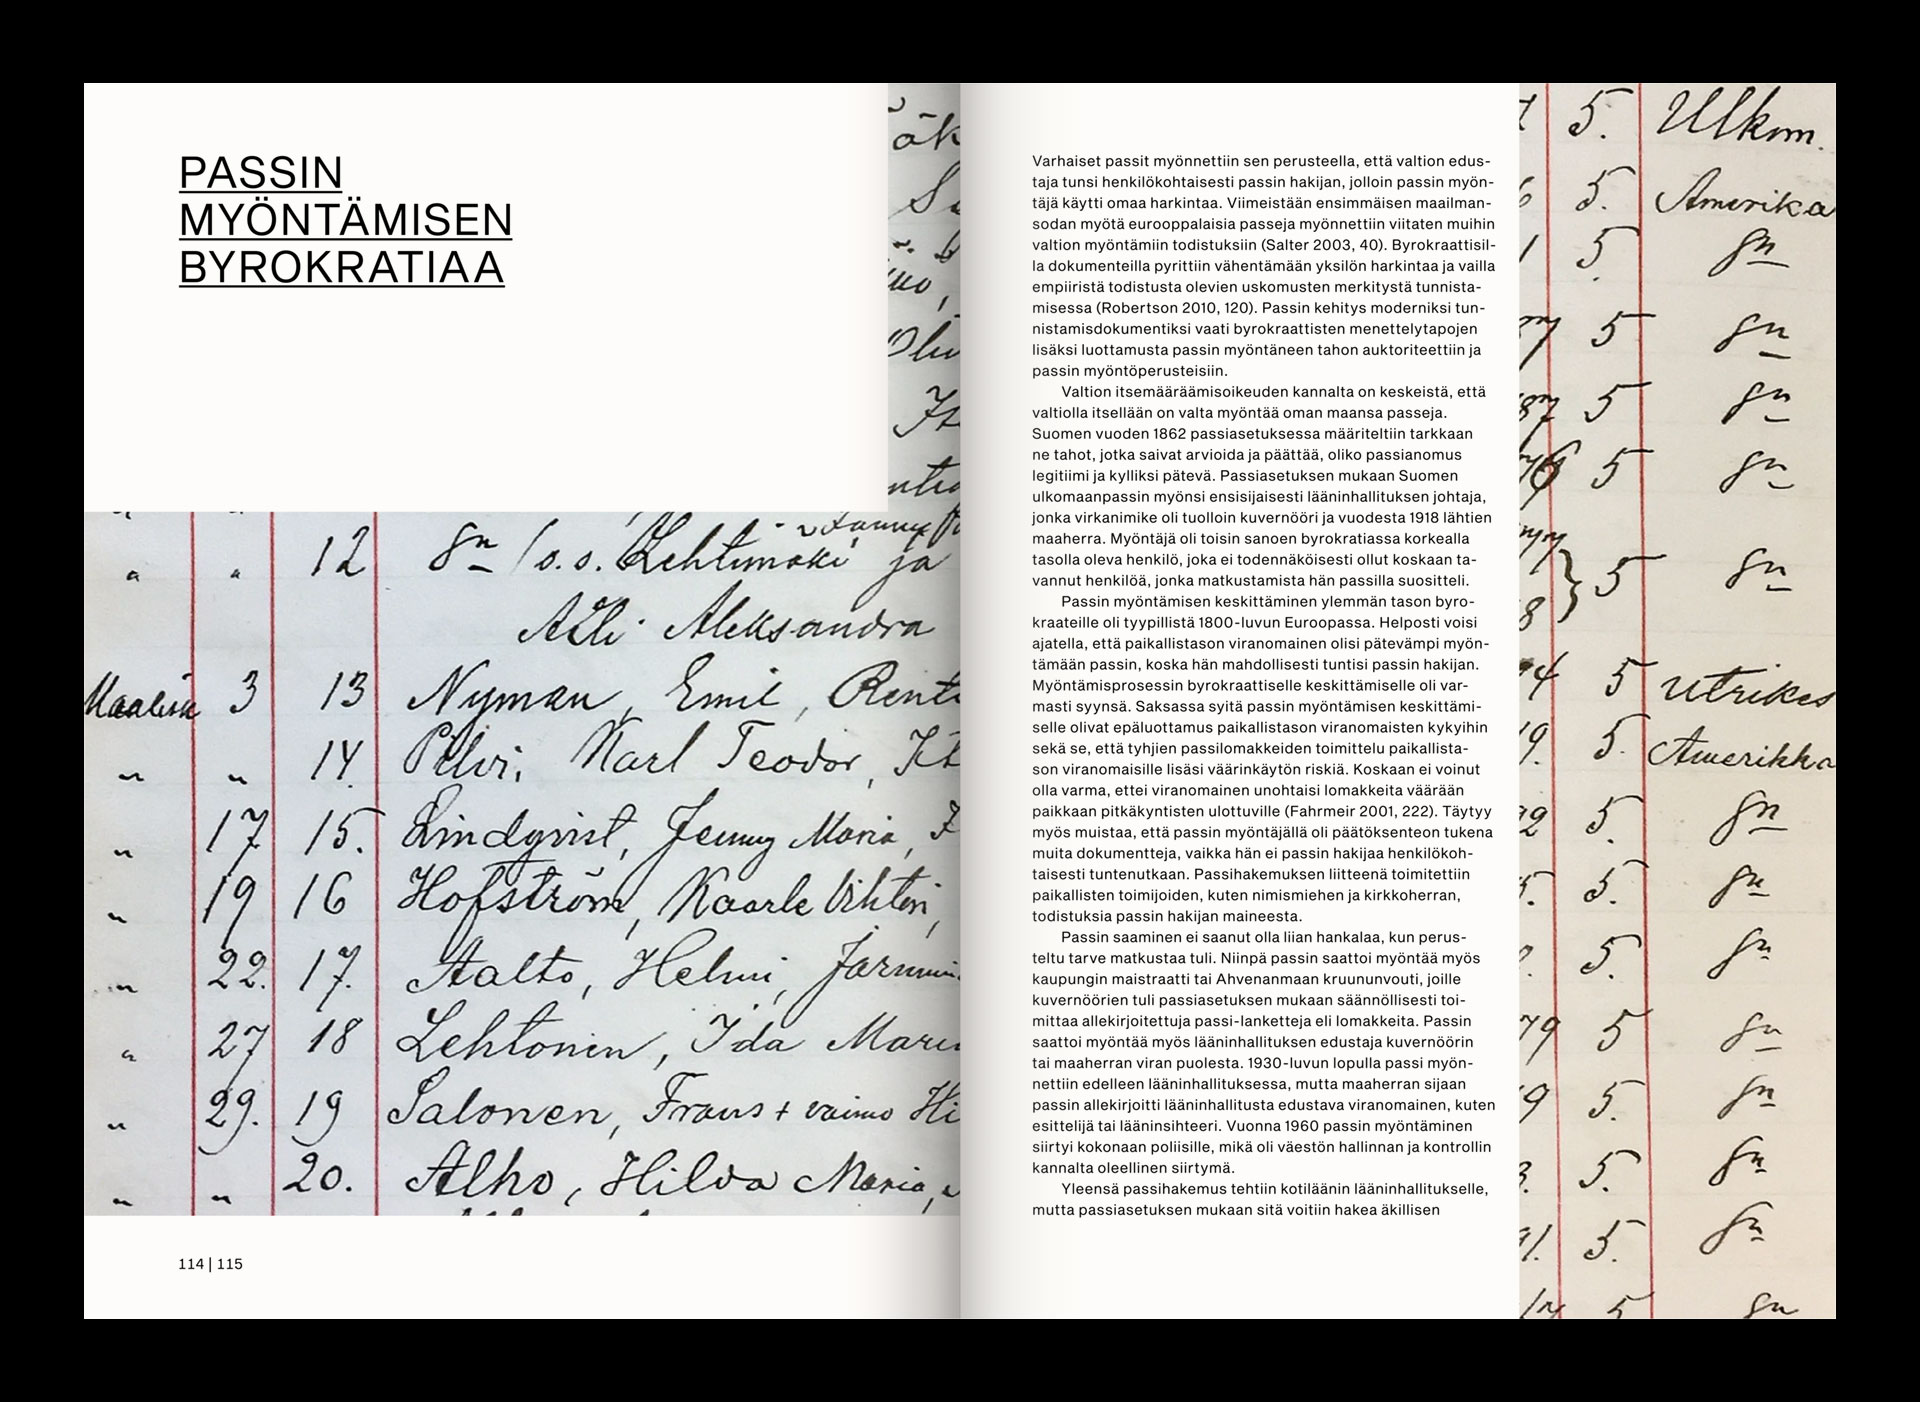 PASSIN
MYÖNTÄMISEN
BYROKRATIAA
12 o.s. Lehtimäki ja
Aili Aleksandra
Maalisk 3 13 Nyman, Emil,
14. Pilvi, Karl Teodor,
17 15. Lindqvist, Jenny Maria,
19 16 Hofström, Kaarle Vihtori,
22. 17. Aalto, Helmi,
27 18 Lehtonen, Ida
29. 19 Salonen, Frans + vaimo
20. Alho, Hilda Maria,
114 | 115
Varhaiset passit myönnettiin sen perusteella, että valtion edus-
taja tunsi henkilökohtaisesti passin hakijan, jolloin passin myön-
täjä käytti omaa harkintaa. Viimeistään ensimmäisen maailman-
sodan myötä eurooppalaisia passeja myönnettiin viitaten muihin
valtion myöntämiin todistuksiin (Salter 2003, 40). Byrokraattisil-
la dokumenteilla pyrittiin vähentämään yksilön harkintaa ja vailla
empiiristä todistusta olevien uskomusten merkitystä tunnista-
misessa (Robertson 2010, 120). Passin kehitys moderniksi tun-
nistamisdokumentiksi vaati byrokraattisten menettelytapojen
lisäksi luottamusta passin myöntäneen tahon auktoriteettiin ja
passin myöntöperusteisiin.
Valtion itsemääräämisoikeuden kannalta on keskeistä, että
valtiolla itsellään on valta myöntää oman maansa passeja.
Suomen vuoden 1862 passiasetuksessa määriteltiin tarkkaan
ne tahot, jotka saivat arvioida ja päättää, oliko passianomus
legitiimi ja kylliksi pätevä. Passiasetuksen mukaan Suomen
ulkomaanpassin myönsi ensisijaisesti lääninhallituksen johtaja,
jonka virkanimike oli tuolloin kuvernööri ja vuodesta 1918 lähtien
maaherra. Myöntäjä oli toisin sanoen byrokratiassa korkealla
tasolla oleva henkilö, joka ei todennäköisesti ollut koskaan ta-
vannut henkilöä, jonka matkustamista hän passilla suositteli.
Passin myöntämisen keskittäminen ylemmän tason byro-
kraateille oli tyypillistä 1800-luvun Euroopassa. Helposti voisi
ajatella, että paikallistason viranomainen olisi pätevämpi myön-
tämään passin, koska hän mahdollisesti tuntisi passin hakijan.
Myöntämisprosessin byrokraattiselle keskittämiselle oli var-
masti syynsä. Saksassa syitä passin myöntämisen keskittämi-
selle olivat epäluottamus paikallistason viranomaisten kykyihin
sekä se, että tyhjien passilomakkeiden toimittelu paikallista-
son viranomaisille lisäsi väärinkäytön riskiä. Koskaan ei voinut
olla varma, ettei viranomainen unohtaisi lomakkeita väärään
paikkaan pitkäkyntisten ulottuville (Fahrmeir 2001, 222). Täytyy
myös muistaa, että passin myöntäjällä oli päätöksenteon tukena
muita dokumentteja, vaikka hän ei passin hakijaa henkilökoh-
taisesti tuntenutkaan. Passihakemuksen liitteenä toimitettiin
paikallisten toimijoiden, kuten nimismiehen ja kirkkoherran,
todistuksia passin hakijan maineesta.
Passin saaminen ei saanut olla liian hankalaa, kun perus-
teltu tarve matkustaa tuli. Niinpä passin saattoi myöntää myös
kaupungin maistraatti tai Ahvenanmaan kruununvouti, joille
kuvernöörien tuli passiasetuksen mukaan säännöllisesti toi-
mittaa allekirjoitettuja passi-lanketteja eli lomakkeita. Passin
saattoi myöntää myös lääninhallituksen edustaja kuvernöörin
tai maaherran viran puolesta. 1930-luvun lopulla passi myön-
nettiin edelleen lääninhallituksessa, mutta maaherran sijaan
passin allekirjoitti lääninhallitusta edustava viranomainen, kuten
esittelijä tai lääninsihteeri. Vuonna 1960 passin myöntäminen
siirtyi kokonaan poliisille, mikä oli väestön hallinnan ja kontrollin
kannalta oleellinen siirtymä.
Yleensä passihakemus tehtiin kotiläänin lääninhallitukselle,
mutta passiasetuksen mukaan sitä voitiin hakea äkillisen
5. Ulkom.
5. Amerika
5
5
5
5
5
5 Utrikes
5. Amerikka
5.
5.
5.
5
5.
5.
5.
5